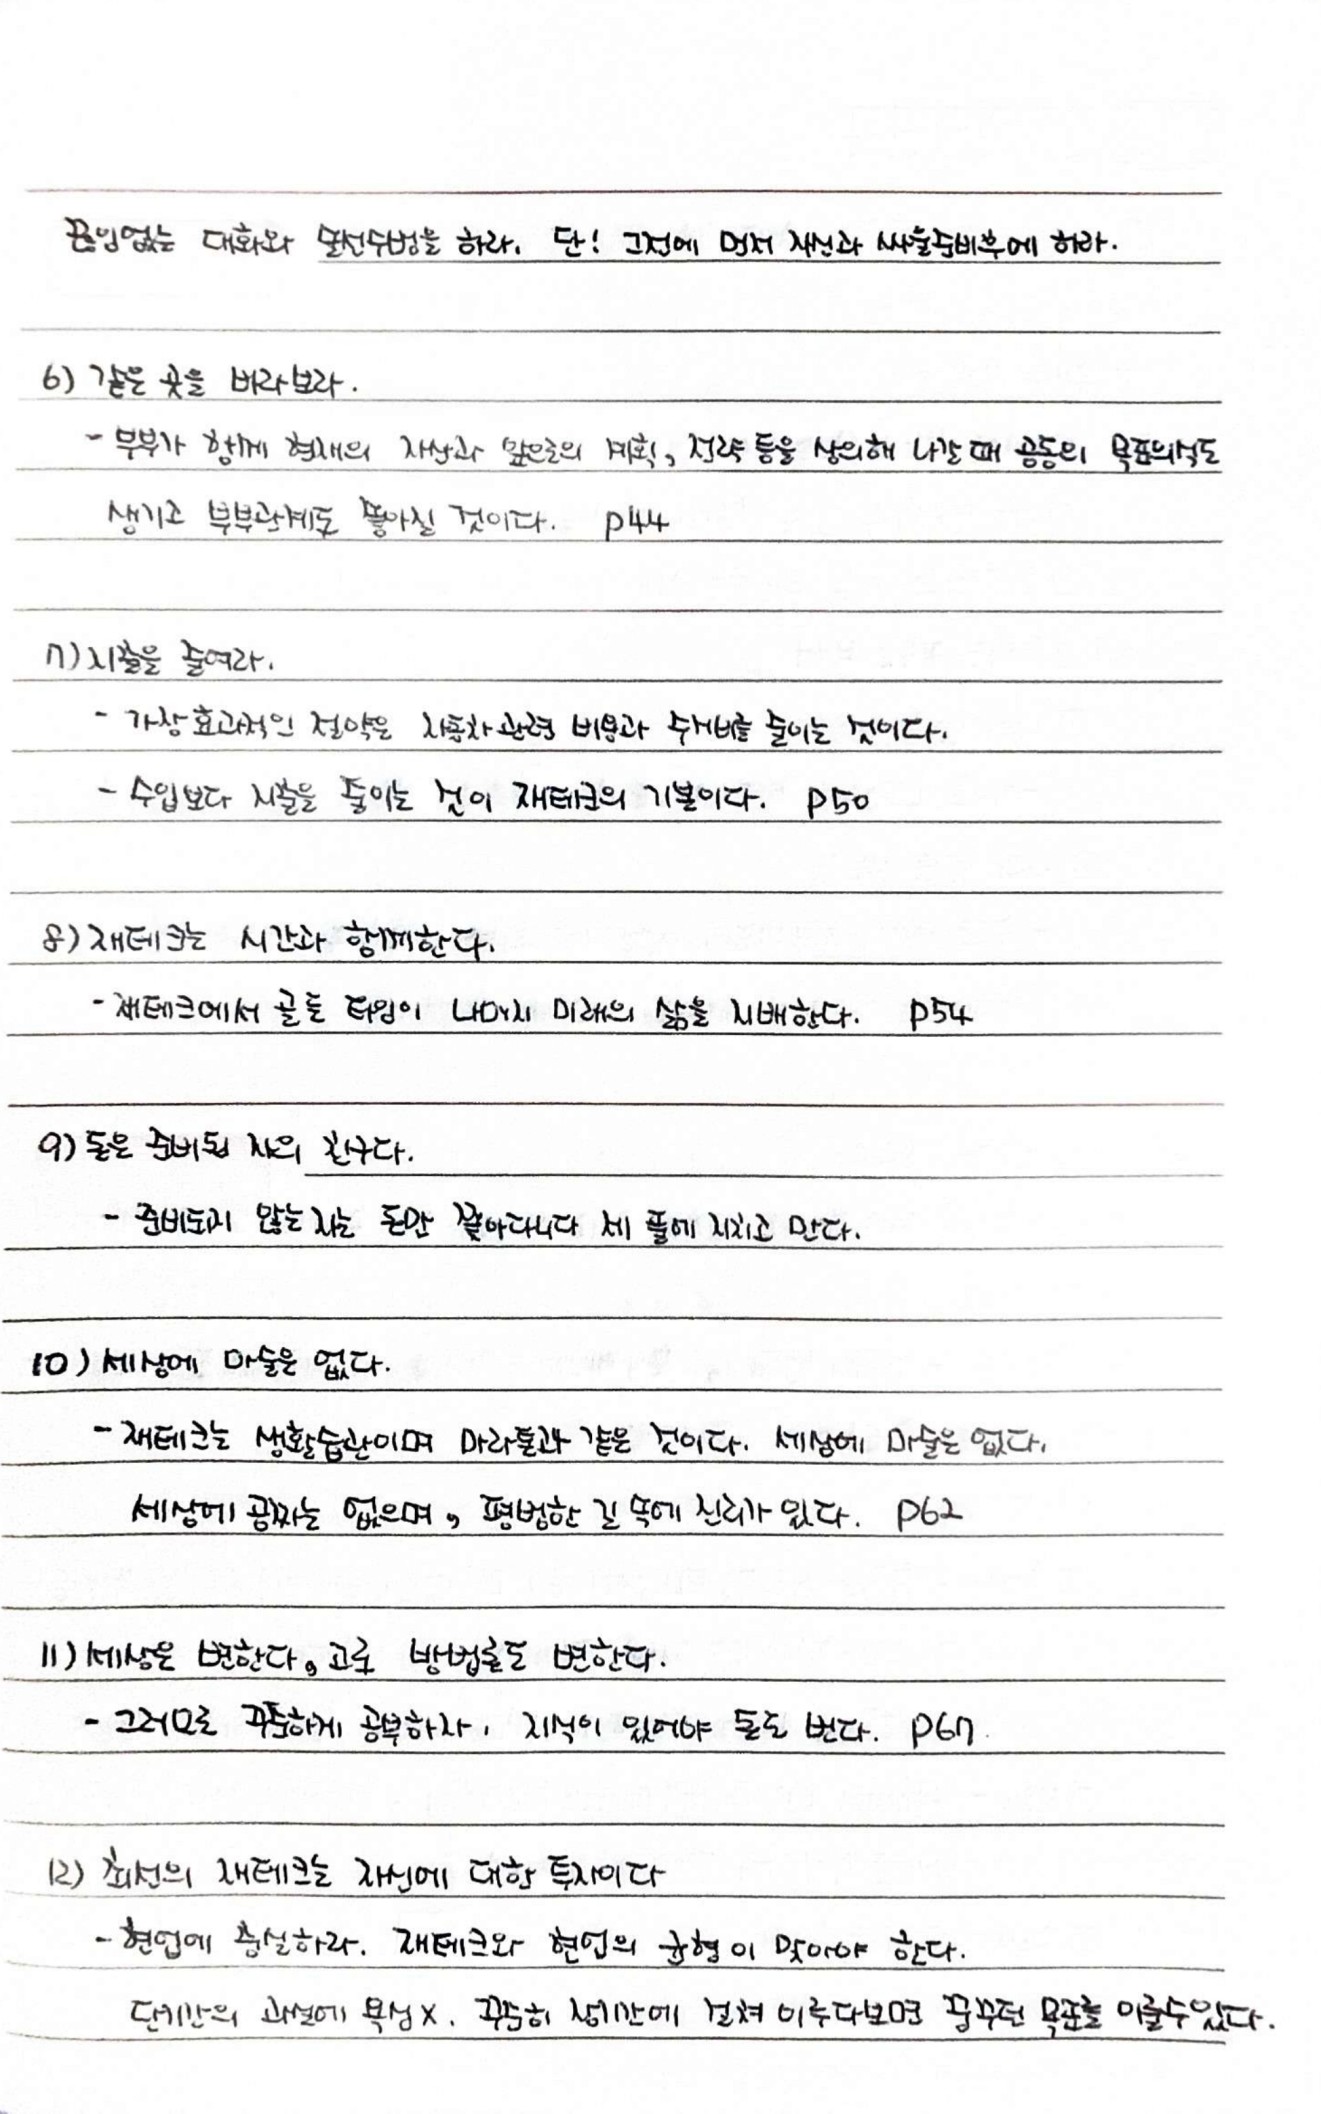 끊임없는 대화와 솔선수범을 하라. 단! 그전에 먼저 자신과 싸울준비후에 하라.
6) 같은 곳을 바라보라.
- 부부가 함께 현재의 자산과 앞으로의 계획, 전략 등을 상의해 나갈 때 공동의 목표의식도
생기고 부부관계도 좋아질 것이다. p44
7) 지출을 줄여라.
- 가장 효과적인 절약은 자동차 관련 비용과 주거비를 줄이는 것이다.
- 수입보다 지출을 줄이는 것이 재테크의 기본이다. p50
8) 재테크는 시간과 함께한다.
- 재테크에서 골든 타임이 나머지 미래의 삶을 지배한다. p54
9) 돈은 준비된 자의 친구다.
- 준비되지 않는 자는 돈만 쫓아다니다 제 풀에 지치고 만다.
10) 세상에 마술은 없다.
- 재테크는 생활습관이며 마라톤과 같은 것이다. 세상에 마술은 없다.
세상에 공짜는 없으며, 평범한 길 속에 진리가 있다. p62
11) 세상은 변한다, 고로 방법론도 변한다.
- 그러므로 꾸준하게 공부하자. 지식이 있어야 돈도 번다. p67
12) 최선의 재테크는 자신에 대한 투자이다
- 현업에 충실하라. 재테크와 현업의 균형이 맞아야 한다.
단기간의 과실에 욕심X. 꾸준히 장기간에 걸쳐 이루다보면 꿈꾸던 목표를 이룰수있다.